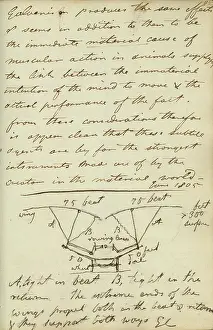 Galvanism produces the same effect
& seems in addition to them to be
the immediate material cause of
muscular action in animals supplying
the link between the immaterial
intention of the mind to move & the
actual performance of the fact.
from these considerations therefore
it appear clear that these subtile
agents are by far the strongest
instruments made use of by the
Creator in the material world.
June 1805
75 beat 75 beat
wing
A B A
B
5 0 5 0
wheel
A, tight in beat B, tight in the
return. The extreme ends of the
wings propel both in the beat & return
& they support both ways &c